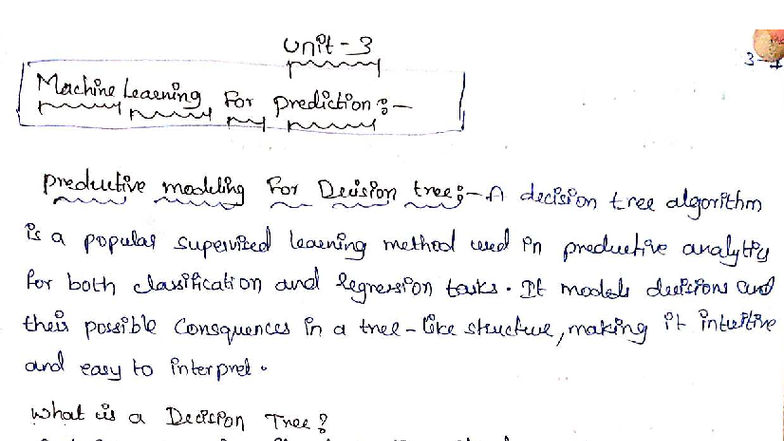 Unit - 3
3-4
Machine Learning For prediction :-
predective modeling For Decision tree :- A decision tree algorithm
is a popular supervized learning method used in predective analytics
for both classification and regression tasks. It models decisions and
their possible Consquences in a tree-like structure, making it intuitive
and easy to interpret.
what is a Decision Tree?